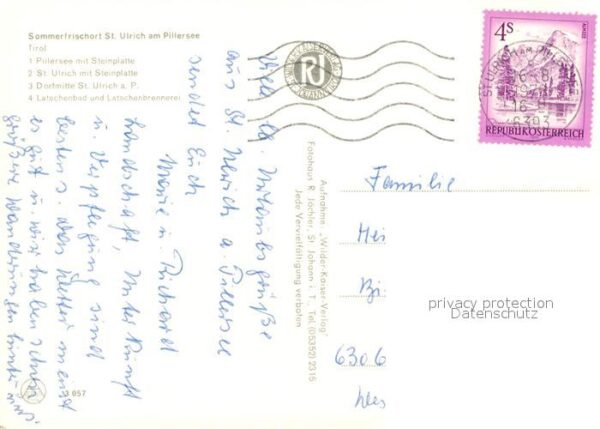 Sommerfrischort St. Ulrich am Pillersee
Tirol
1 Pillersee mit Steinplatte
2 St. Ulrich mit Steinplatte
3 Dorfmitte St. Ulrich a. P.
4 Latschenbad und Latschenbrennerei
RJ
4S
REPUBLIK ÖSTERREICH
6393
Viele lb. Urlaubsgrüße
aus St. Ulrich a. Pillersee
sendet Euch
Marie u. Richard
Landschaft, Unterkunft
u. Verpflegung sind
bestens. Das Wetter meist
es gut u. wir haben schon
größere Wanderungen hinter uns
957
Aufnahme „Wilder-Kaiser-Verlag"
Fotohaus R. Jöchler, St. Johann i. T., Tel. (05352) 2315
Jede Vervielfältigung verboten
Familie
Hei
Bi
6306
privacy protection
Datenschutz